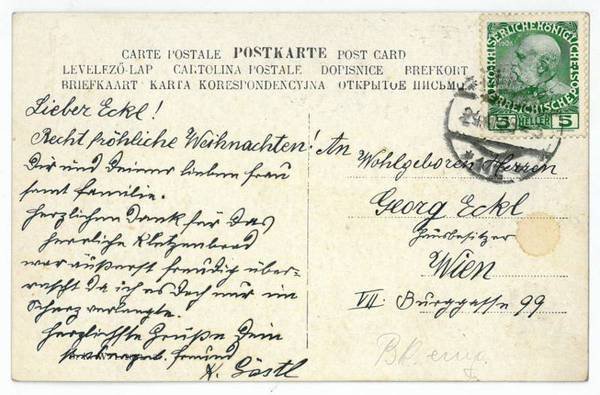 CARTE POSTALE POSTKARTE POST CARD
LEVELEZŐ-LAP CARTOLINA POSTALE DOPISNICE BREFKORT
BRIEFKAART KARTA KORESPONDENCYJNA ОТКРЫТОЕ ПИСЬМО
KAISERLICHE KÖNIGLICHE ÖSTERREICHISCHE
5 HELLER 5
Lieber Eckl!
Recht fröhliche Weihnachten!
Dir und Deiner lieben Frau
samt Familie.
Herzlichen Dank für das
herrliche Kletzenbrod
war äußerst freudig über-
rascht da ich es doch nur im
Scherz verlangte.
Herzlichste Grüße Dein
Freund
K. Göstl
An
Wohlgeboren Herren
Georg Eckl
Hausbesitzer
Wien
VII. Burggasse 99